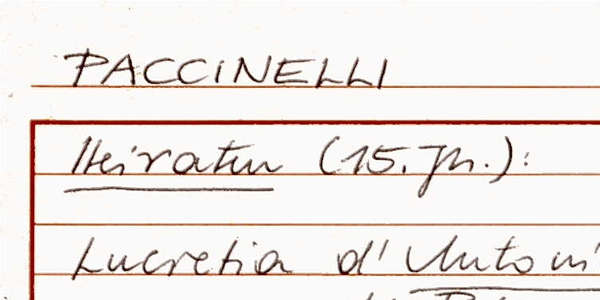 PACCINELLI
Heiraten (15. Jh.):
Lucretia d'Antoni